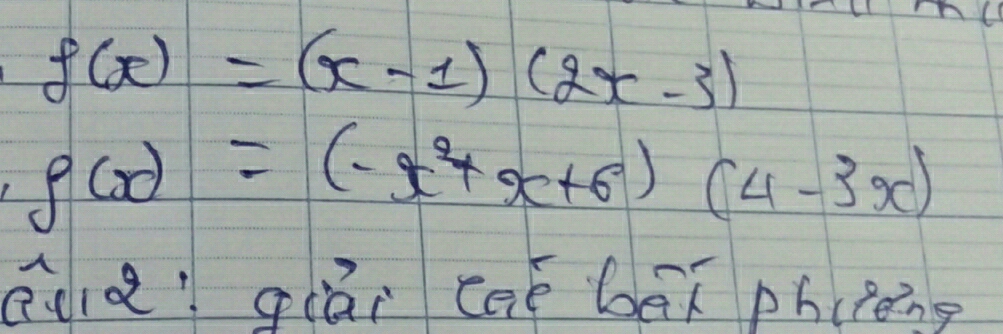 f(x) = (x - 1) (2x - 3)
f(x) = (-x²+ x+6) (4 - 3x)
câu 2: giải các bất phương